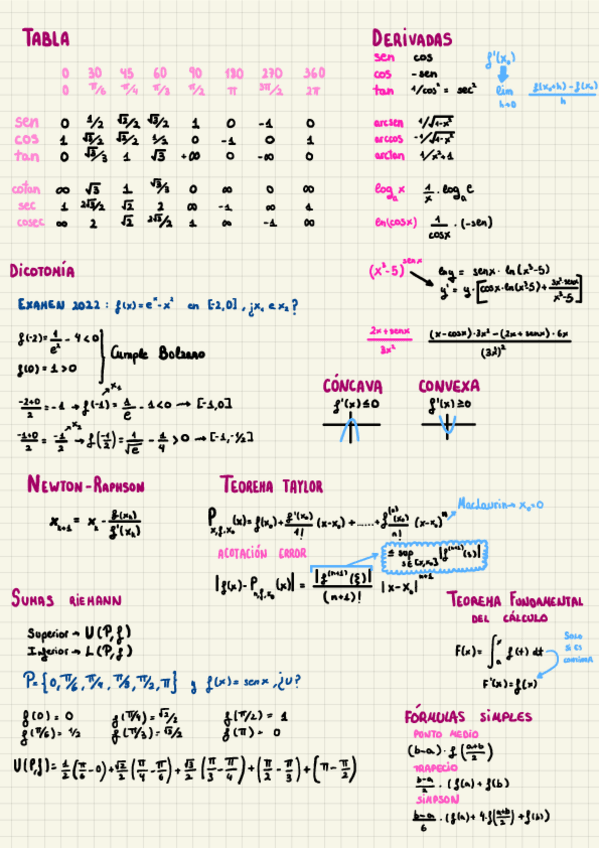 TABLA
0 30 45 60 90 180 270 360
0 π/6 π/4 π/3 π/2 π 3π/2 2π
sen 0 1/2 √2/2 √3/2 1 0 -1 0
cos 1 √3/2 √2/2 1/2 0 -1 0 1
tan 0 √3/3 1 √3 +∞ 0 -∞ 0
cotan ∞ √3 1 √3/3 0 ∞ 0 ∞
sec 1 2√3/2 √2 2 ∞ -1 ∞ 1
cosec ∞ 2 √2 2√3/2 1 ∞ -1 ∞
DERIVADAS
sen cos
cos -sen
tan 1/cos² = sec²
f'(x₀)
lim h→0 f(x₀+h) - f(x₀) / h
arcsen 1/√1-x²
arccos -1/√1-x²
arctan 1/x²+1
logₐ x 1/x · logₐ e
ln(cosx) 1/cosx · (-sen)
(x³-5)^senx
lny = senx · ln(x³-5)
y' = y · [cosx·ln(x³-5) + 3x²·senx / x³-5]
2x+senx / 3x²
(x-cosx)·3x² - (2x+senx)·6x / (3x²)²
DICOTOMÍA
EXAMEN 2022: f(x)=eˣ-x² en [-2,0], ¿x₁ e x₂?
f(-2)= 1/e² - 4 <0
f(0) = 1 >0
Cumple Bolzano
x₁
-2+0 / 2 = -1 → f(-1) = 1/e - 1 <0 → [-1,0]
x₂
-1+0 / 2 = -1/2 → f(-1/2) = 1/√e - 1/4 >0 → [-1,-1/2]
CÓNCAVA
f''(x) ≤ 0
CONVEXA
f''(x) ≥ 0
NEWTON-RAPHSON
x₂₊₁ = x₂ - f(x₂) / f'(x₂)
TEOREMA TAYLOR
P x,f,x₀ (x) = f(x₀) + f'(x₀)/1! (x-x₀) + ...... + f⁽ⁿ⁾(x₀)/n! (x-x₀)ⁿ
Maclaurin → x₀=0
ACOTACIÓN ERROR
≤ sup s∈[x,x₀] |f⁽ⁿ⁺¹⁾(s)|
|f(x) - P n,f,x₀ (x)| = |f⁽ⁿ⁺¹⁾(ξ)| / (n+1)! |x-x₀|ⁿ⁺¹
SUMAS RIEMANN
Superior → U(P,f)
Inferior → L(P,f)
P={0, π/6, π/4, π/3, π/2, π} y f(x)=senx, ¿U?
f(0) = 0 f(π/4) = √2/2 f(π/2) = 1
f(π/6) = 1/2 f(π/3) = √3/2 f(π) = 0
U(P,f) = 1/2 (π/6 - 0) + √2/2 (π/4 - π/6) + √3/2 (π/3 - π/4) + (π/2 - π/3) + (π - π/2)
TEOREMA FUNDAMENTAL
DEL CÁLCULO
F(x) = ∫ₐˣ f(t) dt
Solo
si es
continua
F'(x)=f(x)
FÓRMULAS SIMPLES
PUNTO MEDIO
(b-a) · f(a+b / 2)
TRAPECIO
b-a / 2 · (f(a)+f(b)
SIMPSON
b-a / 6 · (f(a) + 4·f(a+b / 2) + f(b))